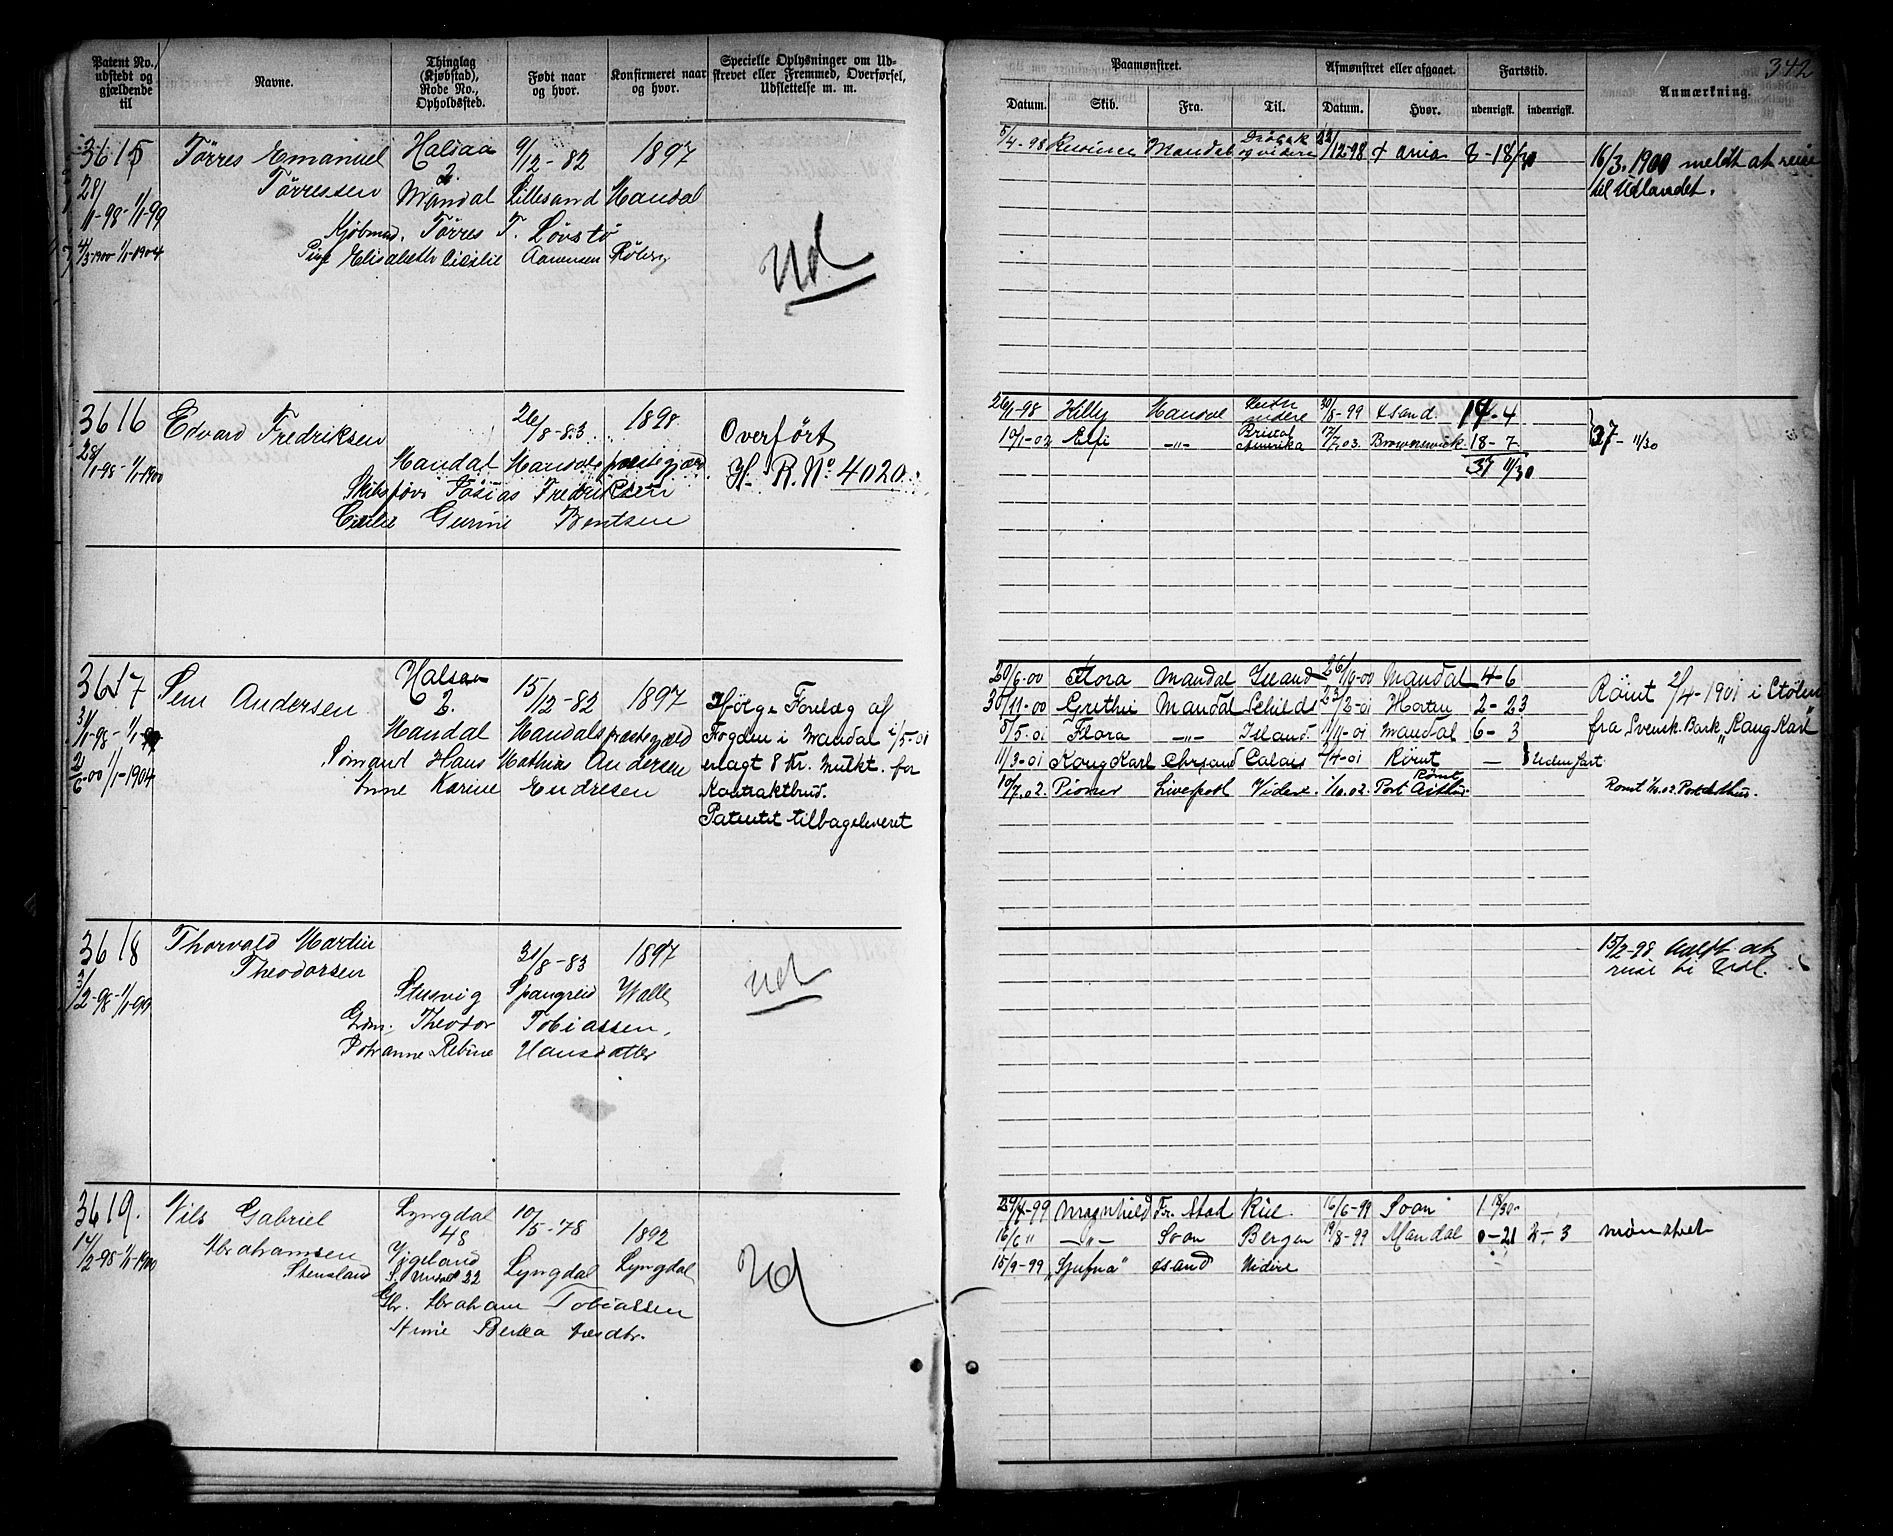 342
Patent No., udstedt og gjældende til
Navne.
Thinglag (Kjøbstad), Rode No., Opholdssted.
Født naar og hvor.
Konfirmeret naar og hvor.
Specielle Oplysninger om Udskrevet eller Fremmed, Overførsel, Udslettelse m. m.
Paamønstret.
Datum. Skib. Fra. Til.
Afmønstret eller afgaaet.
Datum. Hvor.
Fartstid.
udenrigsk. indenrigsk.
Anmærkning.
3615 Tørres Emanuel Halsaa 9/12-82 1897
Tørressen 2.
28/1-98-1/1-99 Mandal Lillesand Mandal
Kjøbmd. Tørres T. Løvstø
Pige Elisabeth Aanensen
Ud
5/4-98 Mandal og videre /12-98 8-18/30
16/3.1900 meldt at reise
til Udlandet.
3616 Edvard Fredriksen 26/8-83 1898 Overført
28/1-98-1/1-1900 Mandal Mandals præstegjæld H. R. No 4020.
Josias Fredriksen
Gurine Bentsen
26/1-98 Kelly Mandal videre 30/8-99 Xsand 19-4
10/1-02 Elfi -"- Bristol Amerika 17/7.03. Brownswick 18-7
37 11/30
37-11/30
3617 Sem Andersen Halsaa 15/12-82 1897 Ifølge Forelæg af
2.
31/1-98-1/1-99 Mandal Mandals præstegjæld Fogden i Mandal 1/5-01
2/6-00 1/1-1904 Sømand Hans Mathias Andersen erlagt 8 Kr. Mulkt. for
Anne Karine Endresen Kontraktbrud.
Patentet tilbageleveret
20/6-00 Flora Mandal Island 26/10-00 Mandal 4-6
30/11-00 Grethe Mandal Schilds 23/2-01 Horten 2-23
8/5-01 Flora -"- Island 11/11-01 Mandal 6-3
11/3-01 Kong Karl Chrsand Calais 2/4-01 Rømt - uden fart
10/7.02. Pioner Liverpool Videre. 1/10.02. Port Arthur Rømt
Rømt 2/4-1901 i Stolen
fra Svensk. Bark "Kong Karl"
Rømt 1/10.02. Port Arthur.
3618 Thorvald Martin 31/8-83 1897
Theodorsen
3/2-98-1/1-99 Stusvig Spangreid Valle
Gdm. Theodor Tobiassen,
Johanne Rebine Hansdatter
ud
15/2-98 meldt at
reise til Udl.
3619. Nils Gabriel Lyngdal 10/5-78 1892
Abrahamsen 48
Stensland Vigeland
14/2-98-1/1-1900 22 Lyngdal Lyngdal
Gbr. Abraham Tobiassen
Anne Berta
Ud
29/4-99 Magnhild Fr. Stad Kiel. 16/6-99 Svan 1 18/30
16/6 " -"- Svan Bergen 19/8-99 Mandal 0-21 2-3
15/9-99 Xsand Videre
mønstret